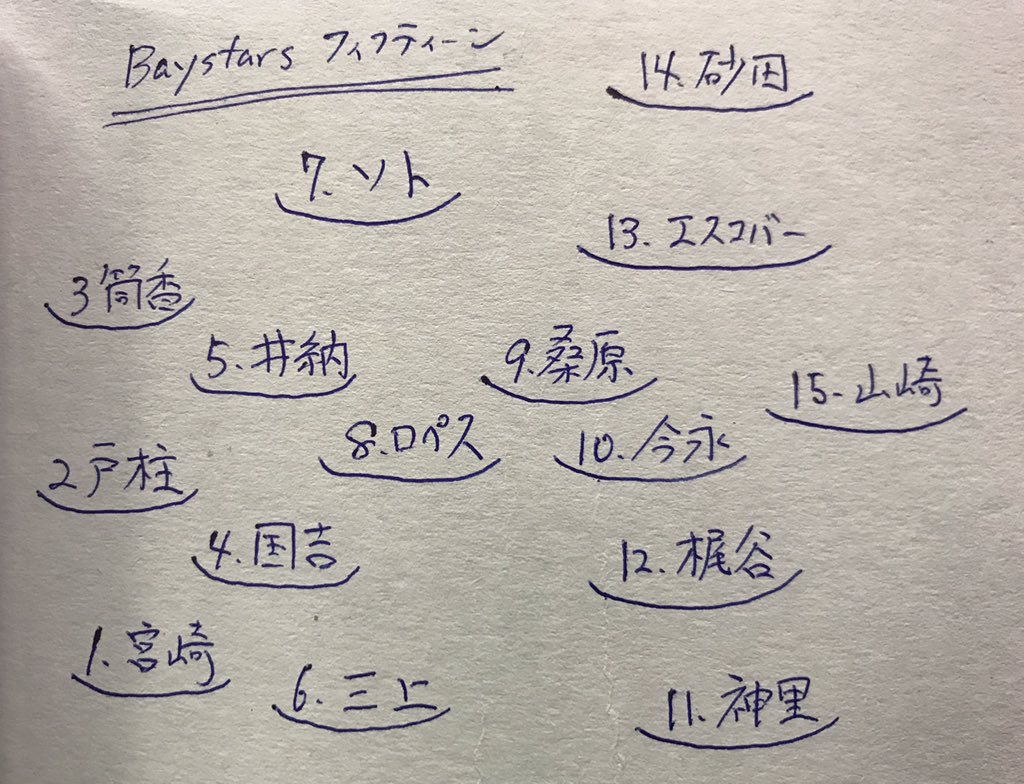 Baystars フィフティーン
14. 砂田
7. ソト
13. エスコバー
3 筒香
5. 井納
9. 桑原
15. 山崎
8. ロペス
10. 今永
2 戸柱
4. 国吉
12. 梶谷
1. 宮崎
6. 三上
11. 神里